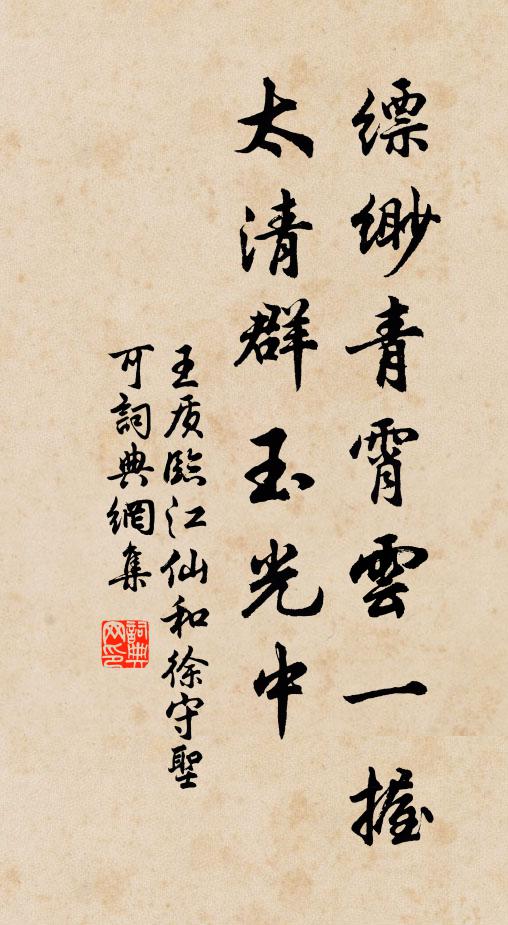 缥缈青霄雲一握
太清群玉光中
王质臨江仙和徐守聖
可詞典網集
詞典網印